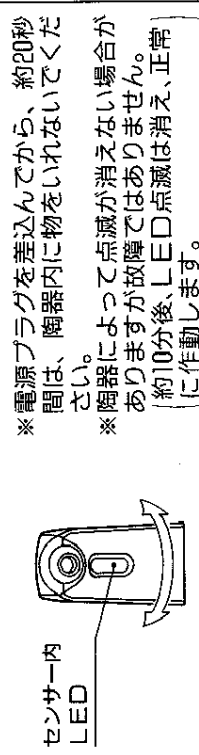 ※電源プラグを差込んでから、約20秒
間は、陶器内に物をいれないでくだ
さい。
※陶器によって点滅が消えない場合が
ありますが故障ではありません。
(約10分後、LED点滅は消え、正常
に作動します。)
センサー内
LED